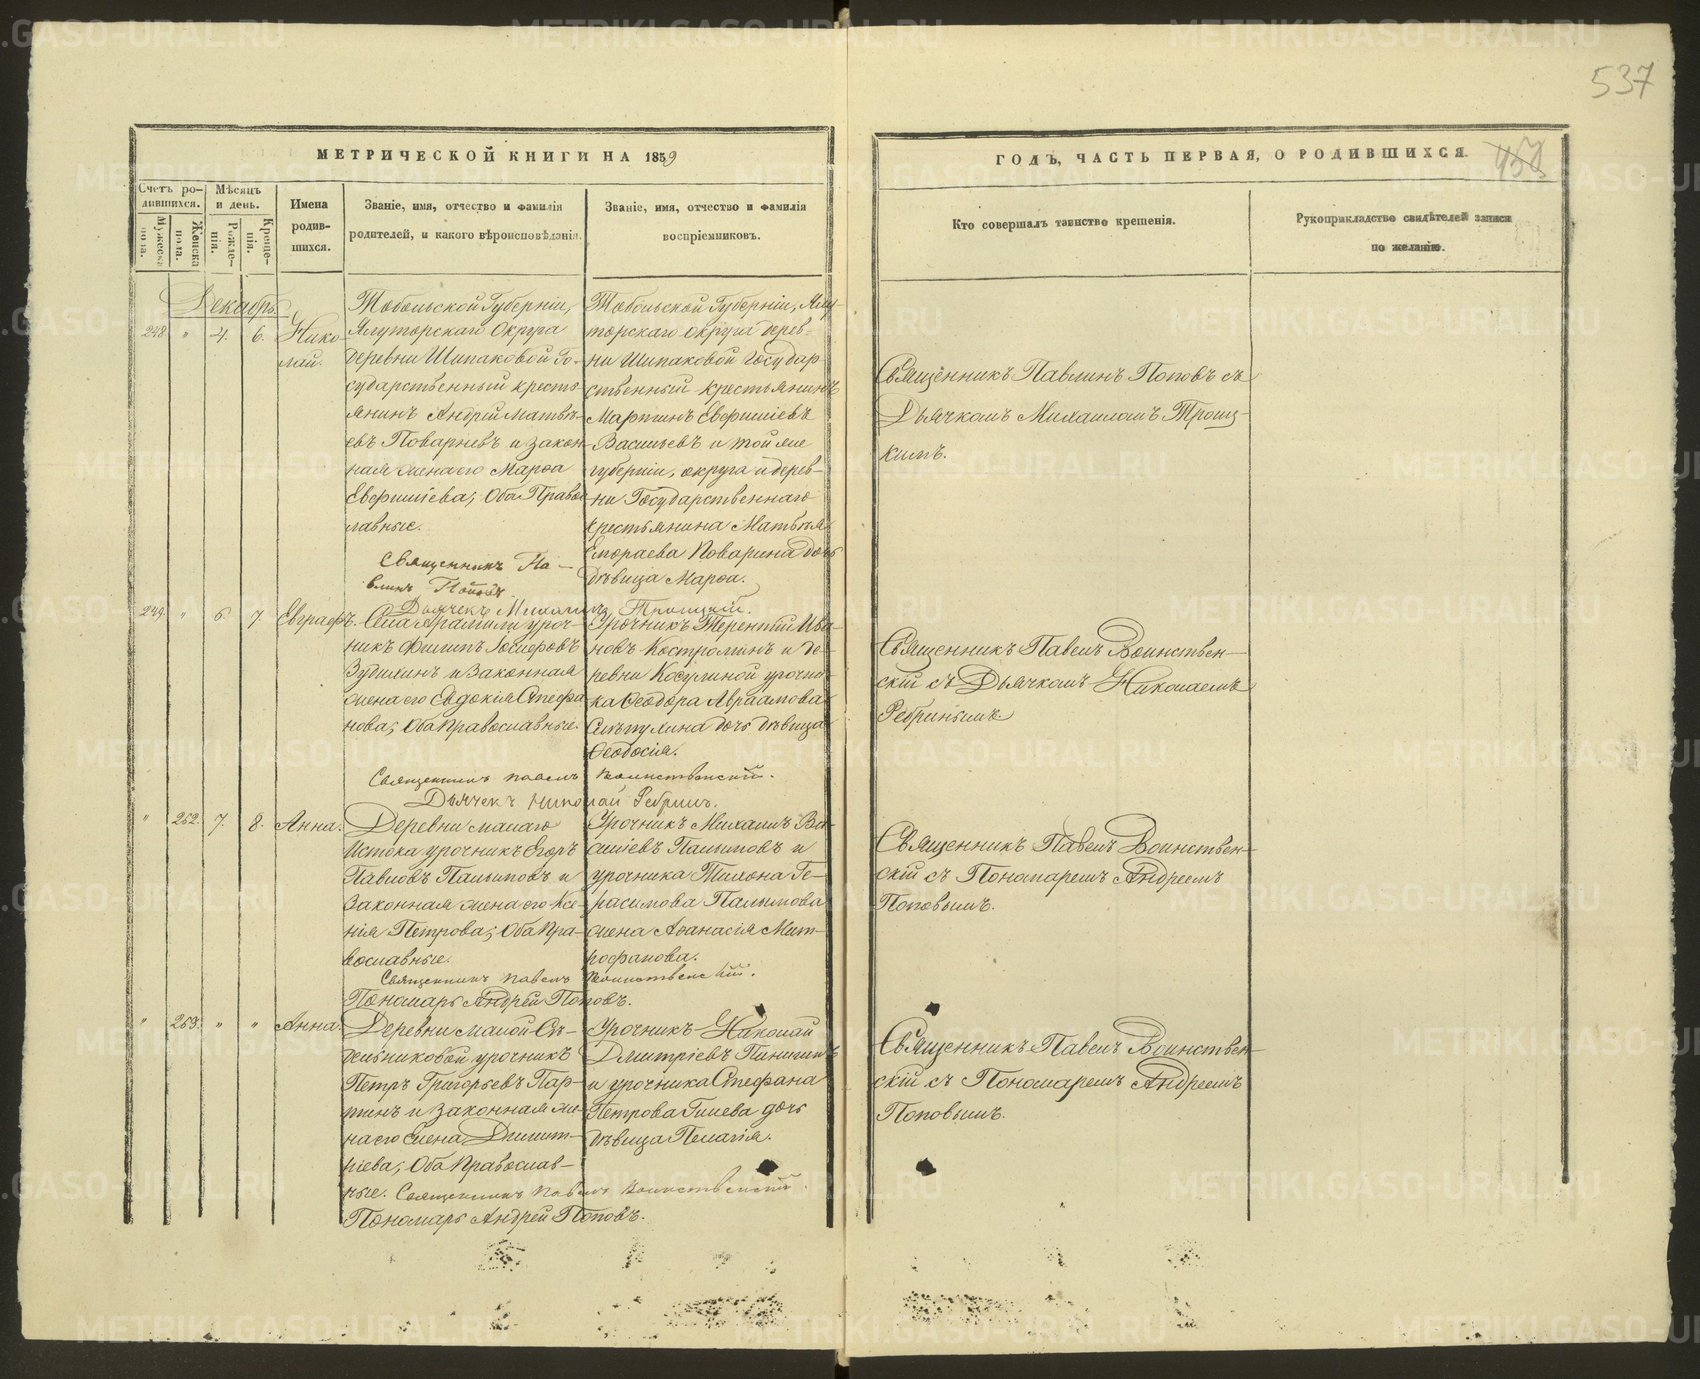 537
МЕТРИЧЕСКОЙ КНИГИ НА 1859
ГОДЪ, ЧАСТЬ ПЕРВАЯ, О РОДИВШИХСЯ.
Счетъ ро-
дившихся.
Мужеска
пола.
Женска
пола.
Мѣсяцъ
и день.
Рожде-
нія.
Креще-
нія.
Имена
родив-
шихся.
Званіе, имя, отчество и фамилія
родителей, и какого вѣроисповѣданія.
Званіе, имя, отчество и фамилія
воспріемниковъ.
Кто совершалъ таинство крещенія.
Рукоприкладство свидѣтелей записи
по желанію.
Декабрь.
248. " 4. 6. Нико-
лай.
Тобольской Губерніи,
Ялуторскаго Округа
деревни Шипаковой Го-
сударственный кресть-
янинъ Андрей Матвѣ-
евъ Поварневъ и закон-
ная жена его Марѳа
Евфиміева; Оба Право-
славные.
Священникъ Па-
влинъ Поповъ.
Дьячекъ Михаилъ Троицкій.
Тобольской Губерніи, Ялу-
торскаго округа дерев-
ни Шипаковой Государ-
ственный крестьянинъ
Мартинъ Евфиміевъ
Васильевъ и той же
губерніи, округа и дерев-
ни Государственнаго
крестьянина Матвѣя
Поварина дочь
дѣвица Марѳа.
Священникъ Павлинъ Поповъ съ
Дьячкомъ Михаиломъ Троиц-
кимъ.
249. " 6. 7. Евграфъ.
Села Арамили уроч-
никъ Филипъ Іосифовъ
Зудихинъ и Законная
жена его Евдокія Стефа-
нова; Оба Православные.
Священникъ Павелъ Воинственскій.
Дьячекъ Николай Ребринъ.
Урочникъ Терентій Ива-
новъ Костроминъ и де-
ревни Косулиной урочни-
ка Ѳеодора Авраамова
дочь дѣвица
Ѳеодосія.
Священникъ Павелъ Воинствен-
скій съ Дьячкомъ Николаемъ
Ребринымъ.
" 252. 7. 8. Анна.
Деревни малаго
Истока урочникъ Егоръ
Павловъ Палымовъ и
Законная жена его Ксе-
нія Петрова; Оба Пра-
вославные.
Священникъ Павелъ Воинственскій.
Пономарь Андрей Поповъ.
Урочникъ Михаилъ Ва-
силіевъ Палымовъ и
урочника Тихона Ге-
расимова Палымова
жена Аѳанасія Мит-
рофанова.
Священникъ Павелъ Воинствен-
скій съ Пономаремъ Андреемъ
Поповымъ.
" 253. " " Анна.
Деревни малой Сѣ-
дельниковой урочникъ
Петръ Григорьевъ Пар-
тинъ и Законная же-
на его Елена Димит-
ріева; Оба Православ-
ные. Священникъ Павелъ Воинственскій.
Пономарь Андрей Поповъ.
Урочникъ Николай
Дмитріевъ Пинигинъ
и урочника Стефана
Петрова Гилева дочь
дѣвица Пелагія.
Священникъ Павелъ Воинствен-
скій съ Пономаремъ Андреемъ
Поповымъ.
METRIKI.GASO-URAL.RU